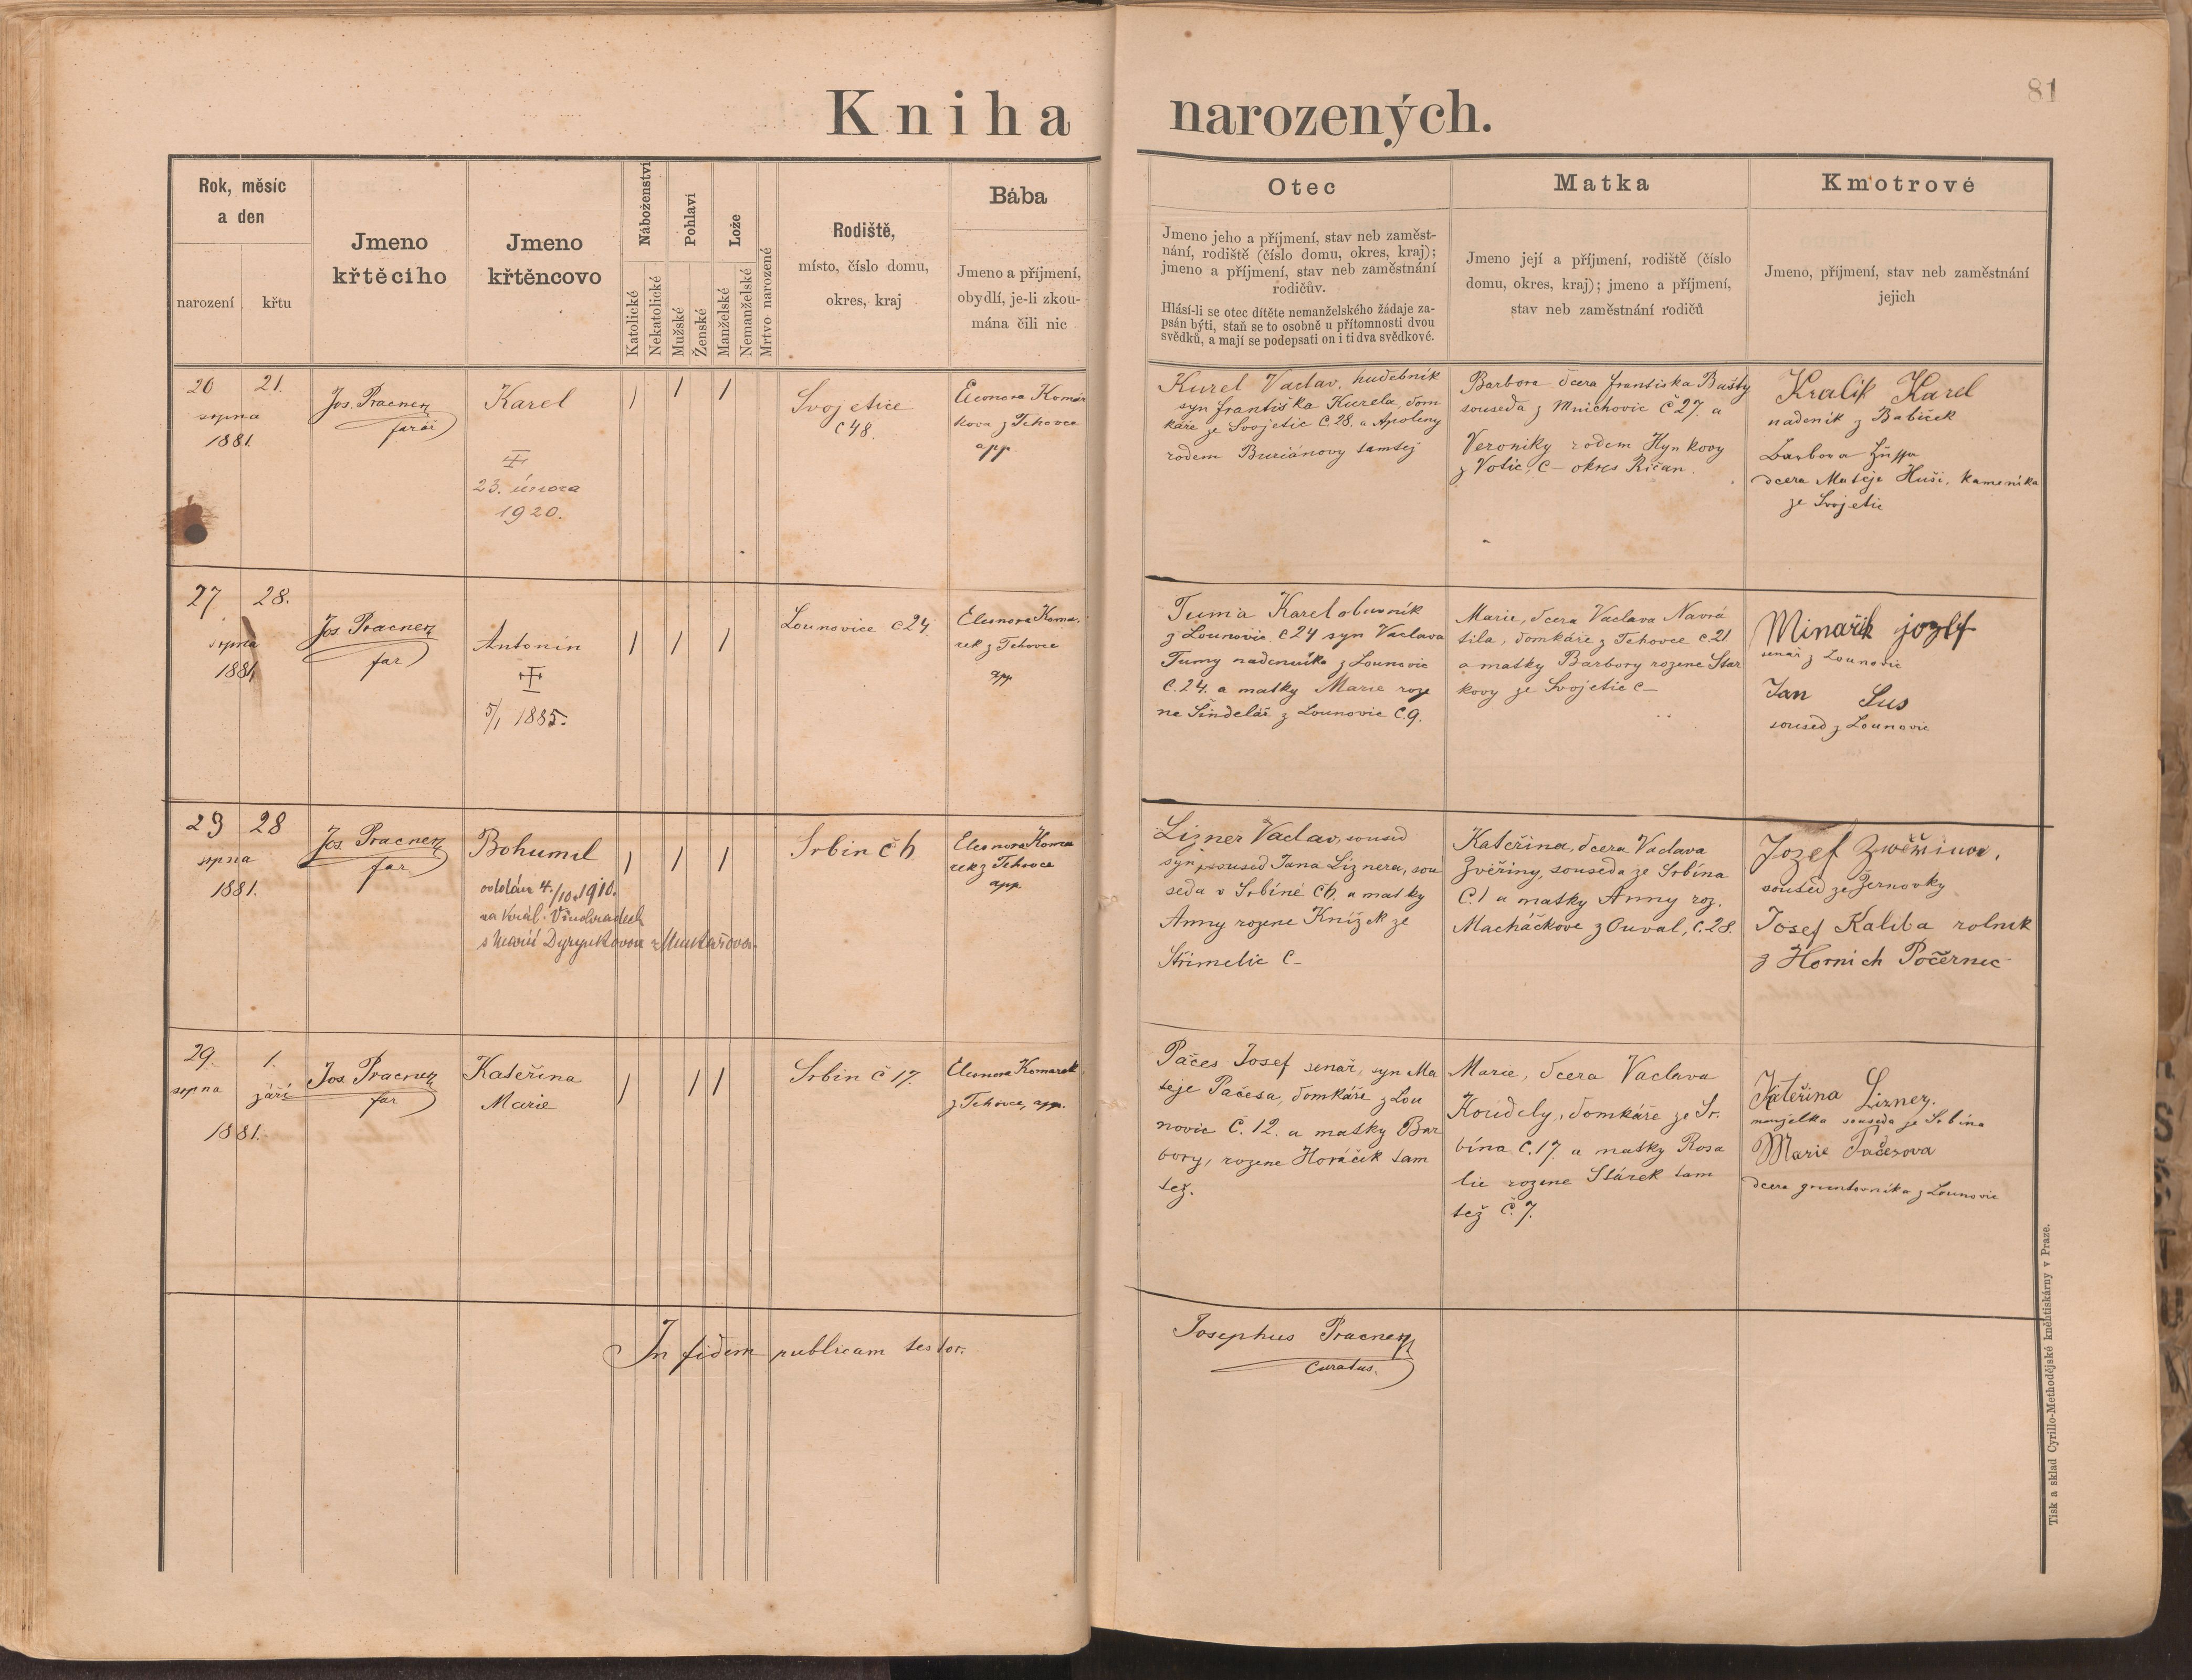 81
Kniha narozených.
Rok, měsíc
a den
narození
křtu
Jmeno
křtěcího
Jmeno
křtěncovo
Náboženství
Katolické
Nekatolické
Pohlaví
Mužské
Ženské
Lože
Manželské
Nemanželské
Mrtvo narozené
Rodiště,
místo, číslo domu,
okres, kraj
Bába
Jmeno a příjmení,
obydlí, je-li zkou-
mána čili nic
Otec
Jmeno jeho a příjmení, stav neb zaměst-
nání, rodiště (číslo domu, okres, kraj);
jmeno a příjmení, stav neb zaměstnání
rodičův.
Hlásí-li se otec dítěte nemanželského žádaje za-
psán býti, staň se to osobně u přítomnosti dvou
svědků, a mají se podepsati on i ti dva svědkové.
Matka
Jmeno její a příjmení, rodiště (číslo
domu, okres, kraj); jmeno a příjmení,
stav neb zaměstnání rodičů
Kmotrové
Jmeno, příjmení, stav neb zaměstnání
jejich
20 21.
srpna
1881.
Jos. Pracner
farář
Karel
23. února
1920.
Svojetice
č 48.
Eleonora Komár
kova z Tehovce
app
Kurel Vaclav, hudebník
syn františka Kurela, dom
káře ze Svojetic č. 28. a Apoleny
rodem Buriánovy tamtej
Barbora dcera františka Bašty
souseda z Mnichovic č 27. a
Veroniky rodem Hynkovy
z Votic, č – okres Říčan.
Kralik Karel
nadeník z Babiček
Barbora
dcera Matěje Huši, kameníka
ze Svojetic
27 28.
srpna
1881.
Jos. Pracner
far
Antonín
5/1 1885.
Lounovice č 24.
Eleonora Koma,
rek z Tehovce
app
Tuma Karel obuvník
z Lounovic č 24 syn Vaclava
Tumy nadeníka z Lounovic
č. 24. a matky Marie roze
ne Šindelář z Lounovic č. 9.
Marie, dcera Vaclava Navrá
tila, domkáře z Tehovce č. 21
a matky Barbory rozene Star
kovy ze Svojetic č –
Minařik jozef
senař z Lounovic
Jan Sus
soused z Lounovic
23 28
srpna
1881.
Jos. Pracner
far.
Bohumil
oddán 4./10.1910.
na Král. Vinohradech
s Marií Dyrynkovou z
Srbín č 6
Eleonora Koma
rek z Tehovce
app
Lizner Vaclav, soused
syn soused Jana Liznera, sou
seda v Srbíně č 6. a matky
Anny rozene Knížek ze
Střimelic č –
Kateřina, dcera Vaclava
Zvěřiny, souseda ze Srbína
č. 1 a matky Anny roz.
Macháčkove z Ouval, č. 28.
Jozef Zwěřina,
soused ze Žernovky
Josef Kaliba rolnik
z Horních Počernic
29. 1.
srpna září
1881.
Jos Pracner
far
Kateřina
Marie
Srbín č 17.
Eleonora Komarek
z Tehovce, app.
Pačes Josef senář, syn Ma
teje Pačesa, domkáře z Lou
novic č. 12. a matky Bar
bory, rozene Horáček tam
též.
Marie, dcera Vaclava
Koudely, domkáře ze Sr.
bína č. 17. a matky Rosa
lie rozene Stárek tam
též č. 7.
Kateřina Lizner.
manželka souseda ze Srbína
Marie Pačesova
dcera gruntovníka z Lounovic
In fidem publicam testor.
Josephus Pracner
Curatus.
Tisk a sklad Cyrillo-Methodějské knihtiskárny v Praze.